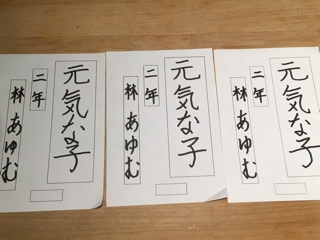 元気な子
二年
林あゆむ
元気な子
二年
林あゆむ
元気な子
二年
林あゆむ